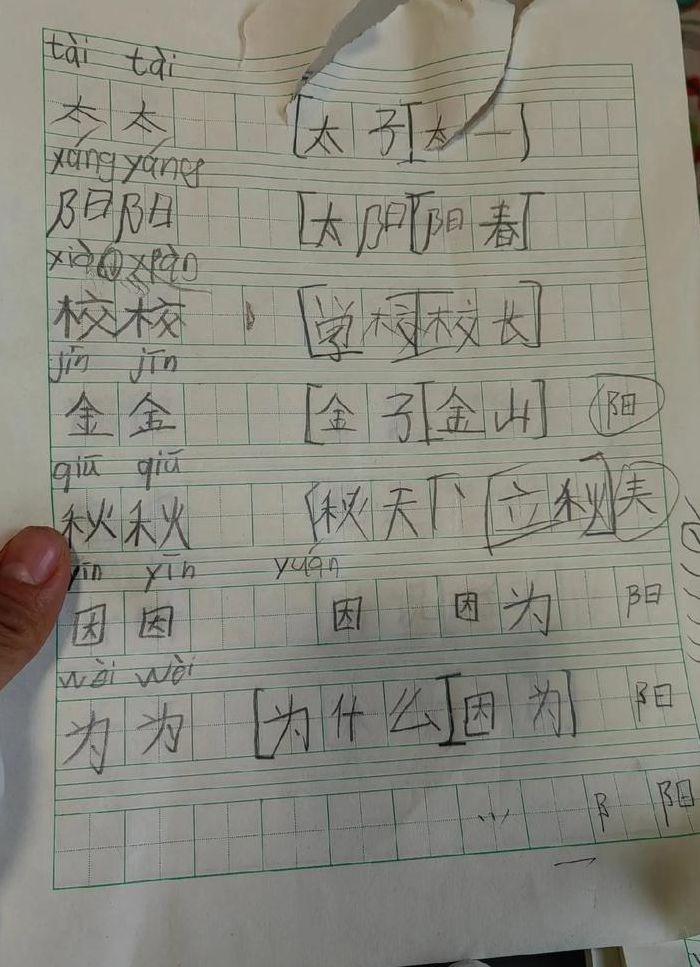 tài tài
太 太 [太子][太一]
yáng yáng
阳 阳 [太阳][阳春]
xiào
校 校 [学校][校长]
jīn jīn
金 金 [金子][金山] 阳
qiū qiū
秋 秋 [秋天] [立秋] 美
yīn yīn yuán
因 因 因 因为 阳
wèi wèi
为 为 [为什么][因为] 阳
阝 阳